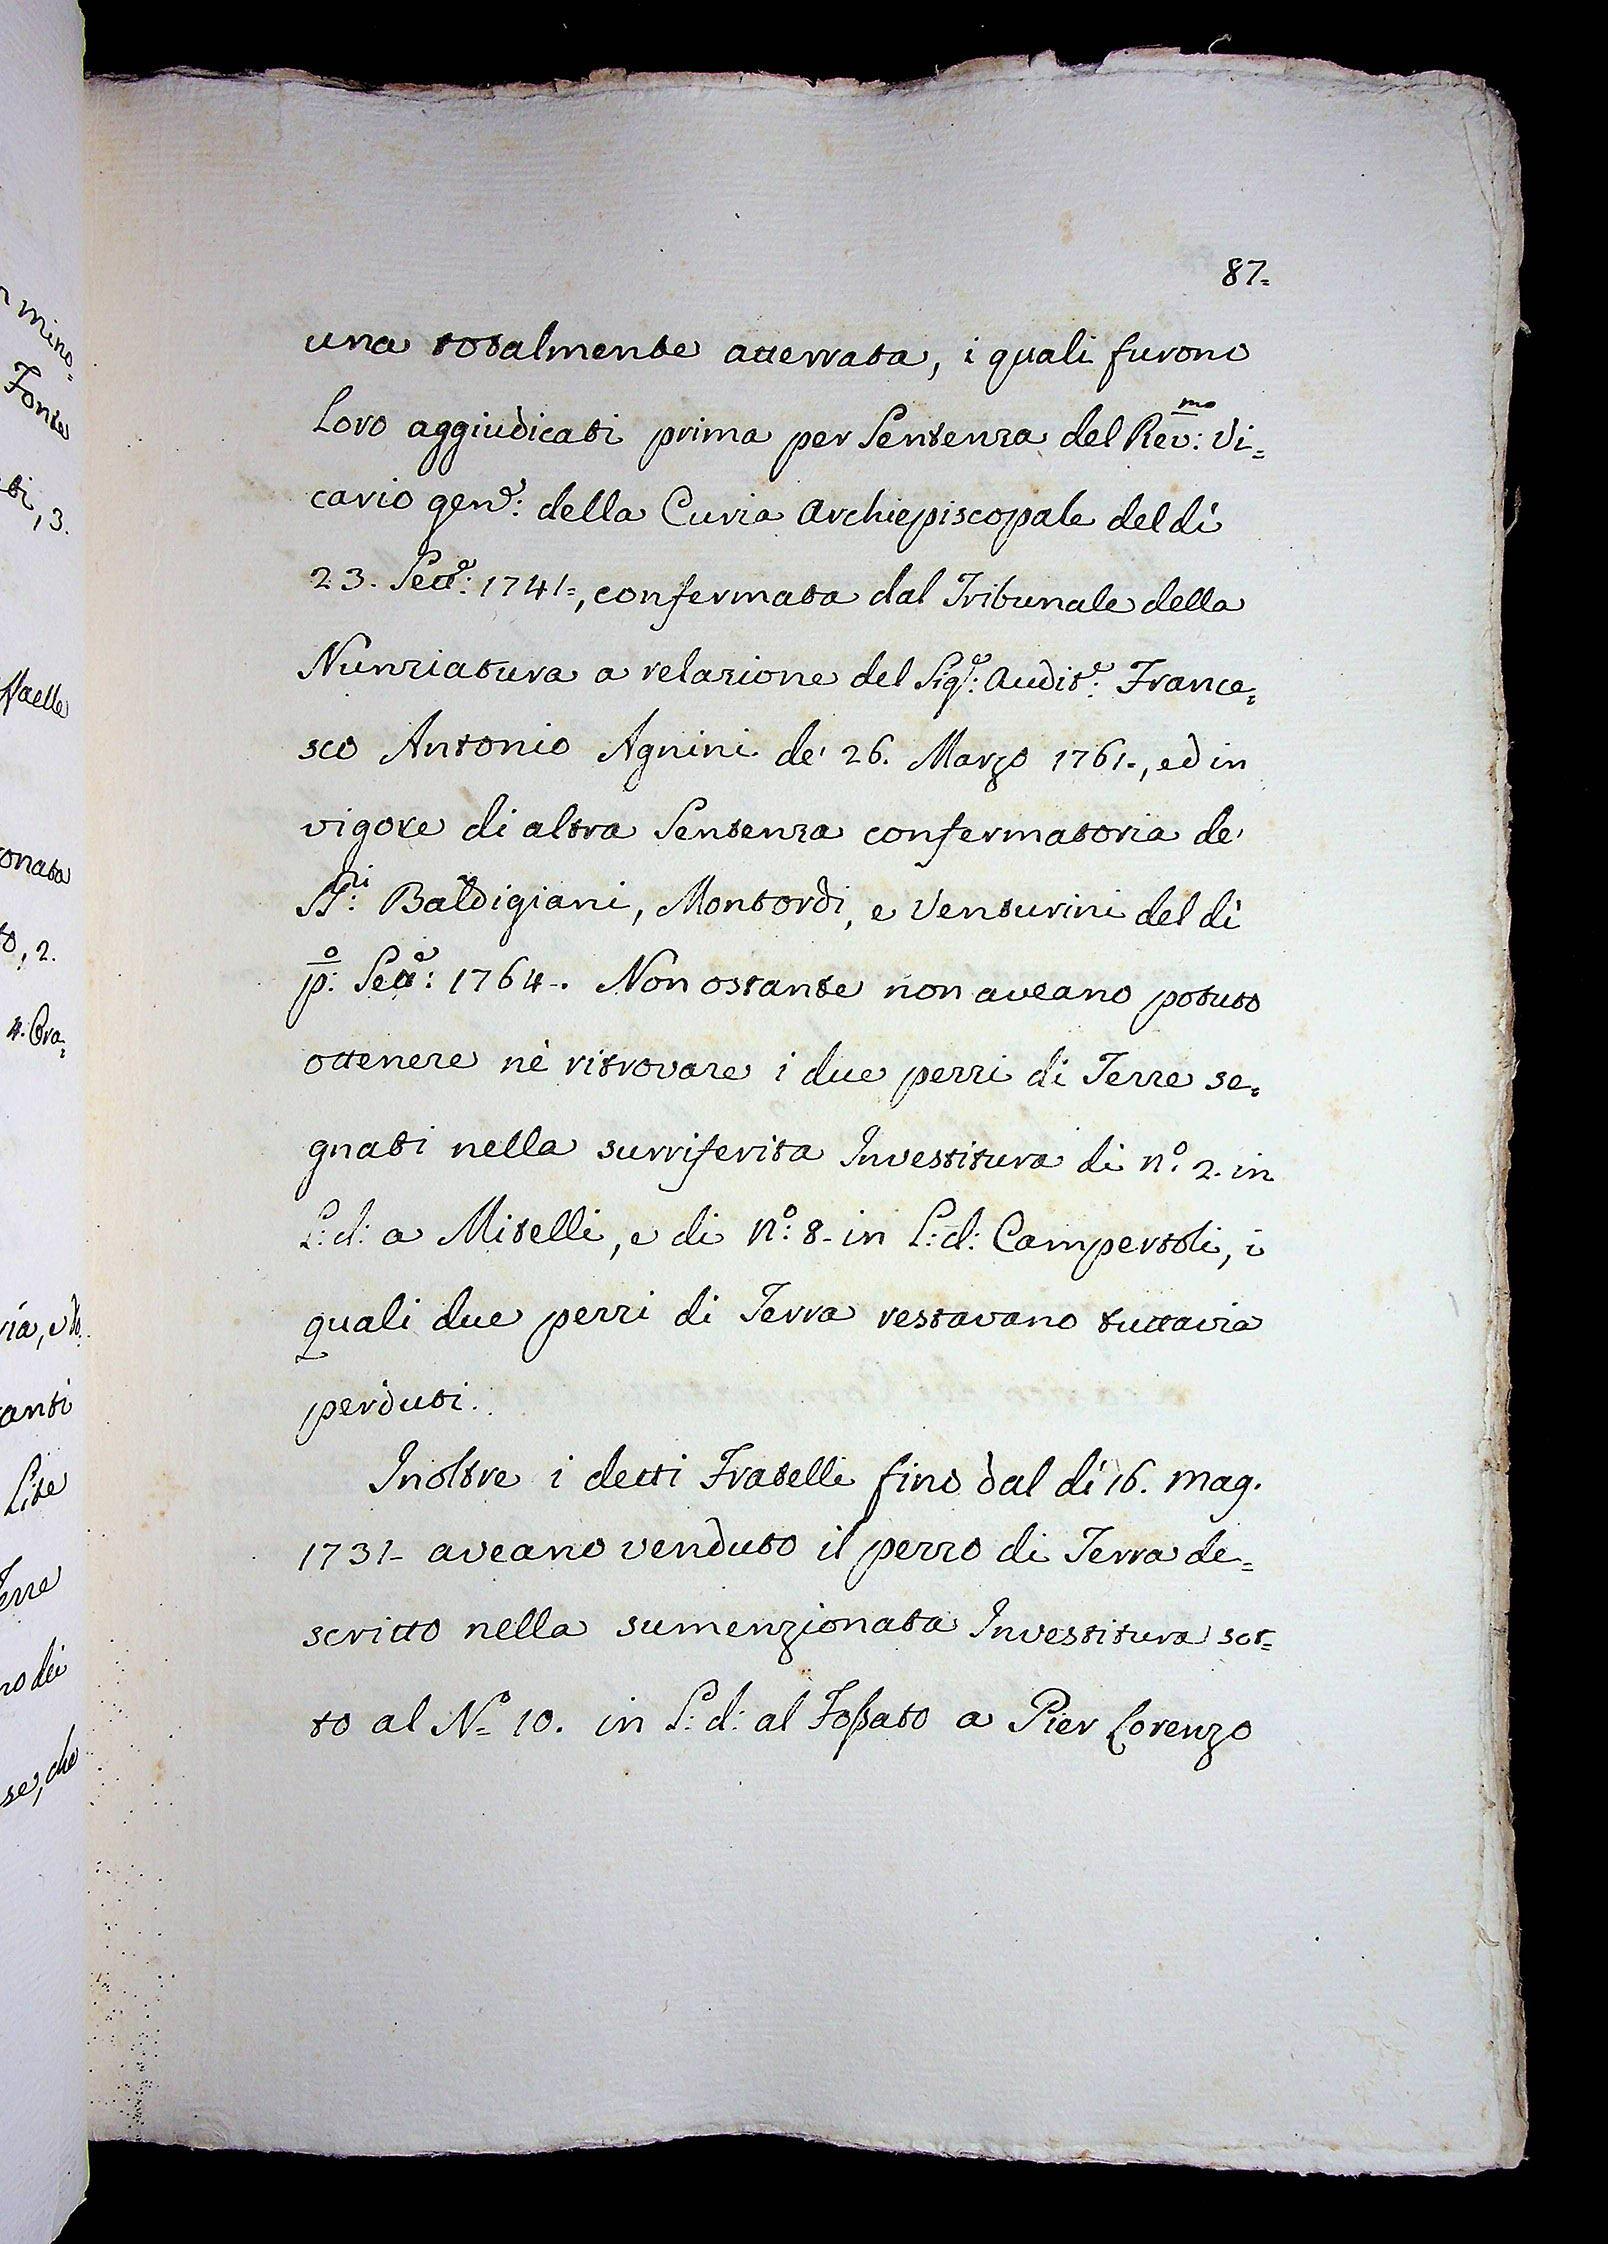 87=
una totalmente atterrata, i quali furono
Loro aggiudicati prima per Sentenza del Rev:mo Vi=
cario gen.e: della Curia Archiepiscopale del dì
23. Sett.e: 1741=, confermata dal Tribunale della
Nunziatura a relazione del Sig.e: Audit.e: France=
sco Antonio Agnini de' 26. Marzo 1761-, ed in
vigore di altra Sentenza confermatoria de'
SS.ri: Baldigiani, Montordi, e Venturini del dì
p:o Sett.e: 1764-. Non ostante non aveano potuto
ottenere nè ritrovare i due pezzi di Terre se=
gnati nella surriferita Investitura di n.o 2. in
L: d: a Mitelli, e di N.o: 8- in L: d: Campertoli, i
quali due pezzi di Terra restavano tuttavia
perduti.
Inoltre i detti Fratelli fino dal dì 16. Mag.
1731- aveano venduto il pezzo di Terra de=
scritto nella sumenzionata Investitura sot=
to al N.o 10. in L: d: al Foßato a Pier Lorenzo
mino=
Fonte
ti, 3.
ffaelle
onata
to, 2.
4. Ora=
anti
Lite
Terre
no dei
se, che